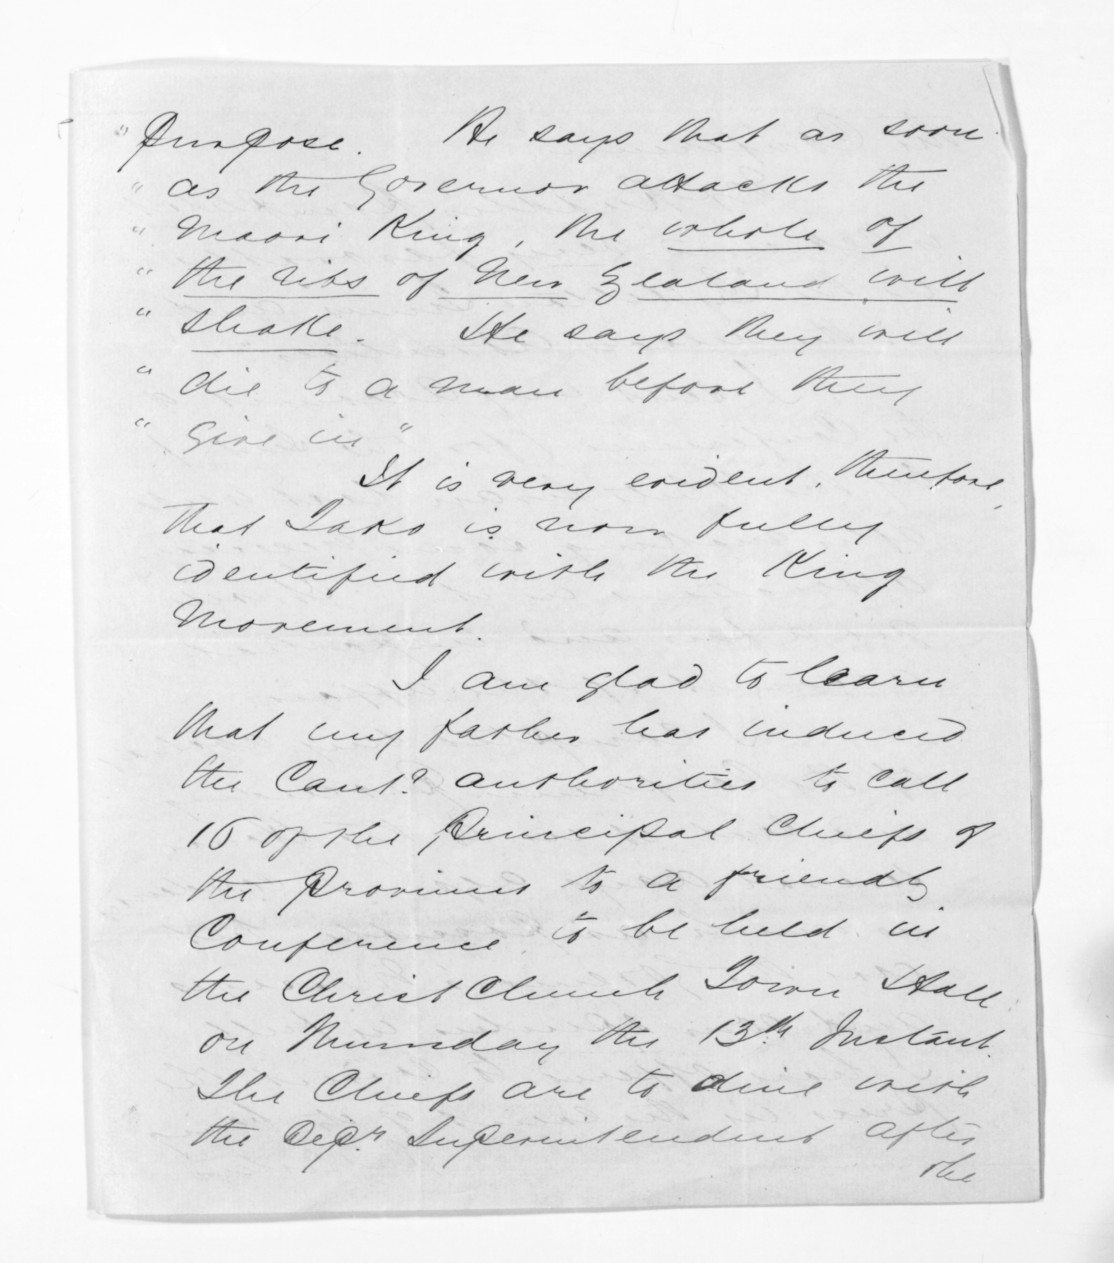 " Purpose. He says that as soon
" as the Governor attacks the
" Maori King, the whole of
" the ribs of New Zealand will
" shake. He says they will
" die to a man before they
" give in"
It is very evident, therefore,
that Tako is now fully
identified with the King
Movement.
I am glad to learn
that my father has induced
the Cant.y authorities to call
16 of the Principal Chiefs of
the Province to a friendly
Conference to be held in
the Christchurch Town Hall
on Thursday the 13th Instant.
The Chiefs are to dine with
the Depy. Superintendent after
the